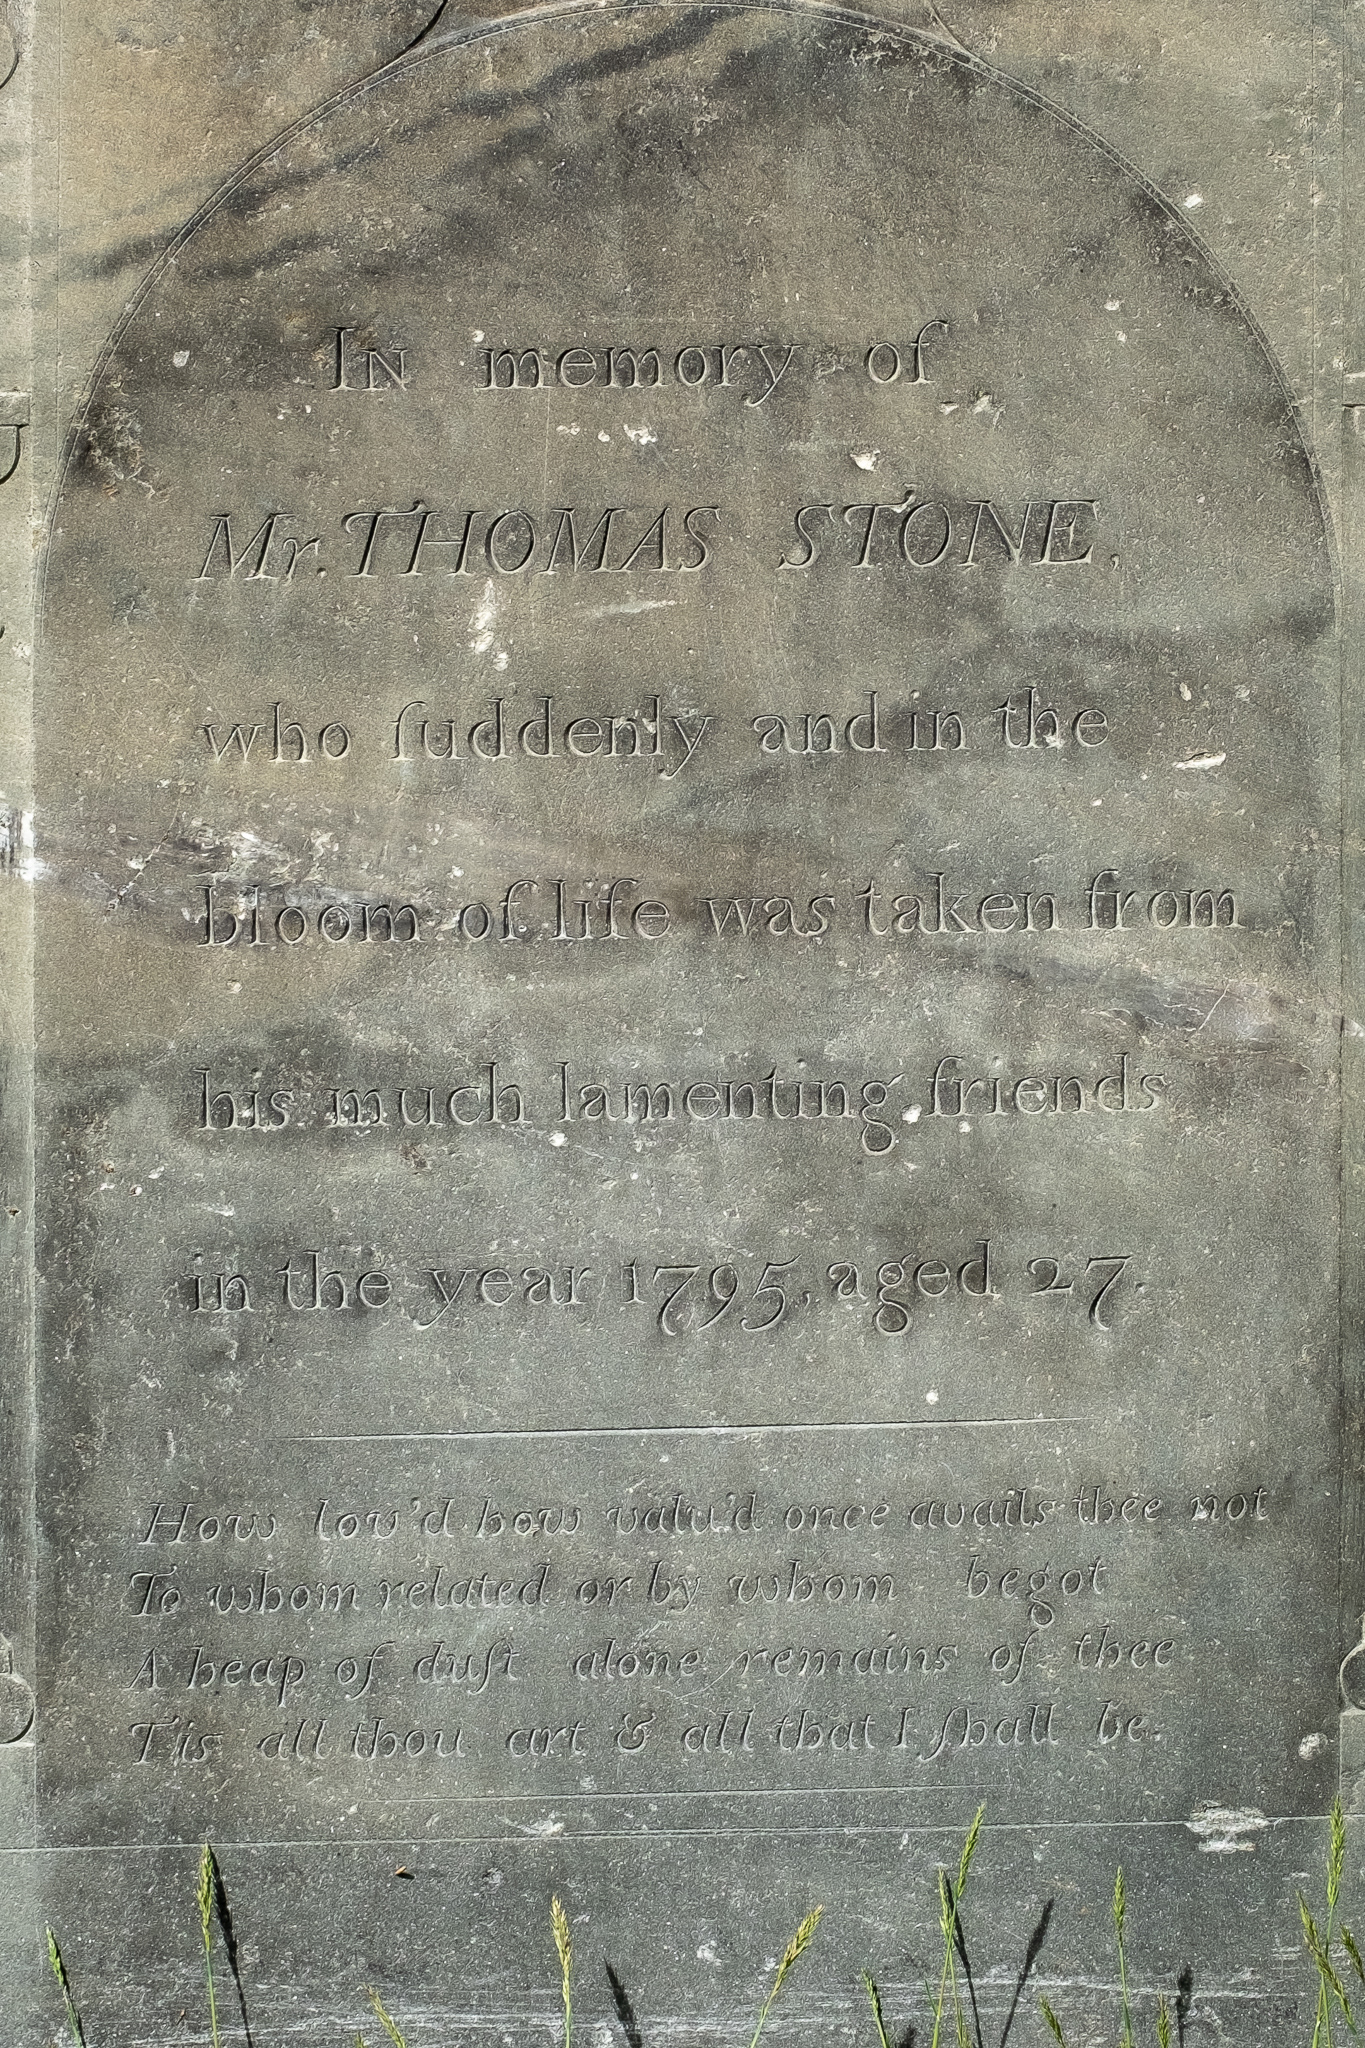 IN memory of
Mr. THOMAS STONE,
who ſuddenly and in the
bloom of life was taken from
his much lamenting friends
in the year 1795, aged 27.
How lov'd how valu'd once avails thee not
To whom related or by whom begot
A heap of duſt alone remains of thee
Tis all thou art & all that I ſhall be.